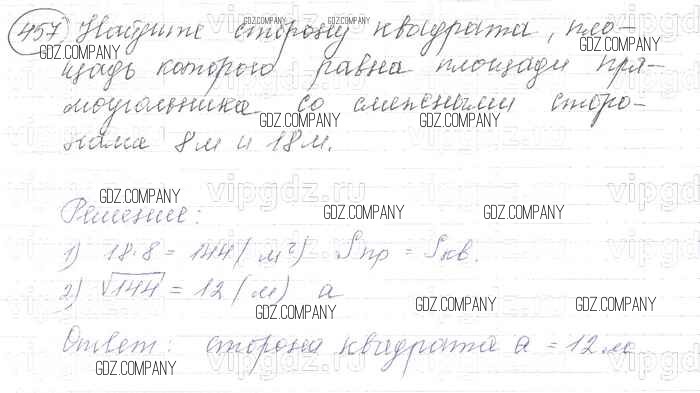 457 Найдите сторону квадрата, пло-
щадь которого равна площади пря-
моугольника со смежными сторо-
нами 8м и 18м.
Решение:
1) 18·8 = 144 (м²) Sпр = Sкв.
2) √144 = 12 (м) a
Ответ: сторона квадрата a = 12м
GDZ.COMPANY
GDZ.COMPANY
GDZ.COMPANY
GDZ.COMPANY
GDZ.COMPANY
GDZ.COMPANY
GDZ.COMPANY
GDZ.COMPANY
GDZ.COMPANY
GDZ.COMPANY
GDZ.COMPANY
GDZ.COMPANY
GDZ.COMPANY
GDZ.COMPANY
vipgdz.ru
vipgdz.ru
vipgdz.ru
vipgdz.ru